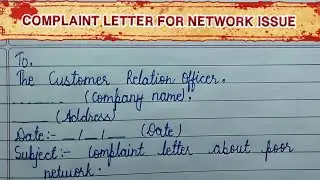 COMPLAINT LETTER FOR NETWORK ISSUE
To,
The Customer Relation Officer.
_______ (Company name).
____ (Address)
Date:- __/__/__ (Date)
Subject:- Complaint letter about poor
network: